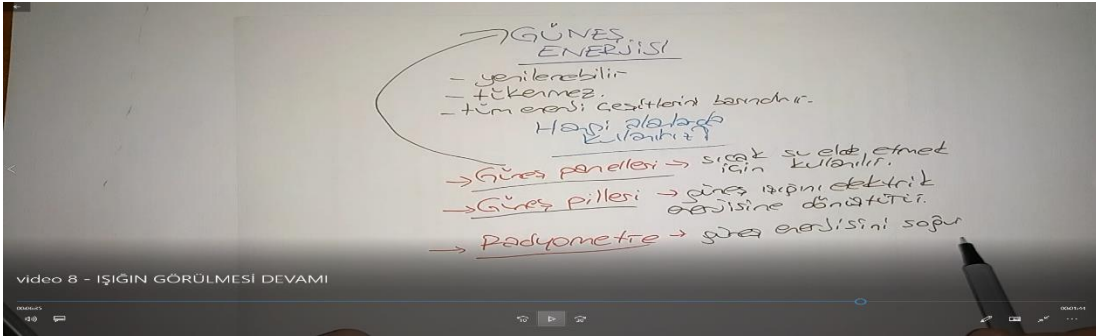 GÜNEŞ
ENERJİSİ
- yenilenebilir
- tükenmez.
- tüm enerji çeşitlerini barındırır.
Hangi alanlarda
kullanırız?
→ Güneş panelleri → sıcak su elde etmek
için kullanılır.
→ Güneş pilleri → güneş ışığını elektrik
enerjisine dönüştürür.
→ Radyometre → güneş enerjisini soğur
video 8 - IŞIĞIN GÖRÜLMESİ DEVAMI
00:06:25